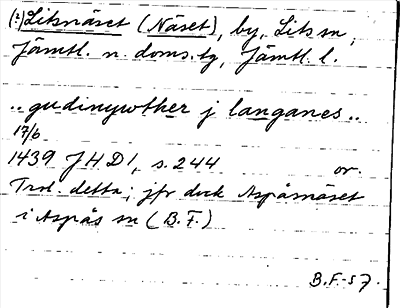 (?) Liknäset (Näset), by, Lits sn,
Jämtl. n. doms.tg, Jämtl. l.
.. gudinywther j langanes ..
17/6
1439 JHD1, s. 244 or.
Trol. detta; jfr dock Aspåsnäset
i Aspås sn (B.F.)
B.F.-57.